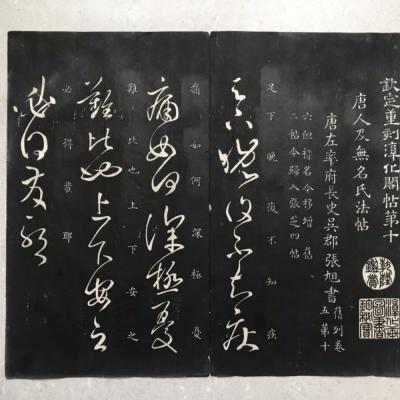 欽定重刻淳化閣帖第十
唐人及無名氏法帖
乾隆鑑賞
淳化軒圖書珍秘寶
唐左率府長史吳郡張旭書
舊列卷
五第十
二帖今歸入張芝四帖
足下晚復不知疾
足下晚復不知疾
痛如何深極憂
痛如何深極憂
難比也上下安之
難比也上下安之
必得發耶
必得發耶